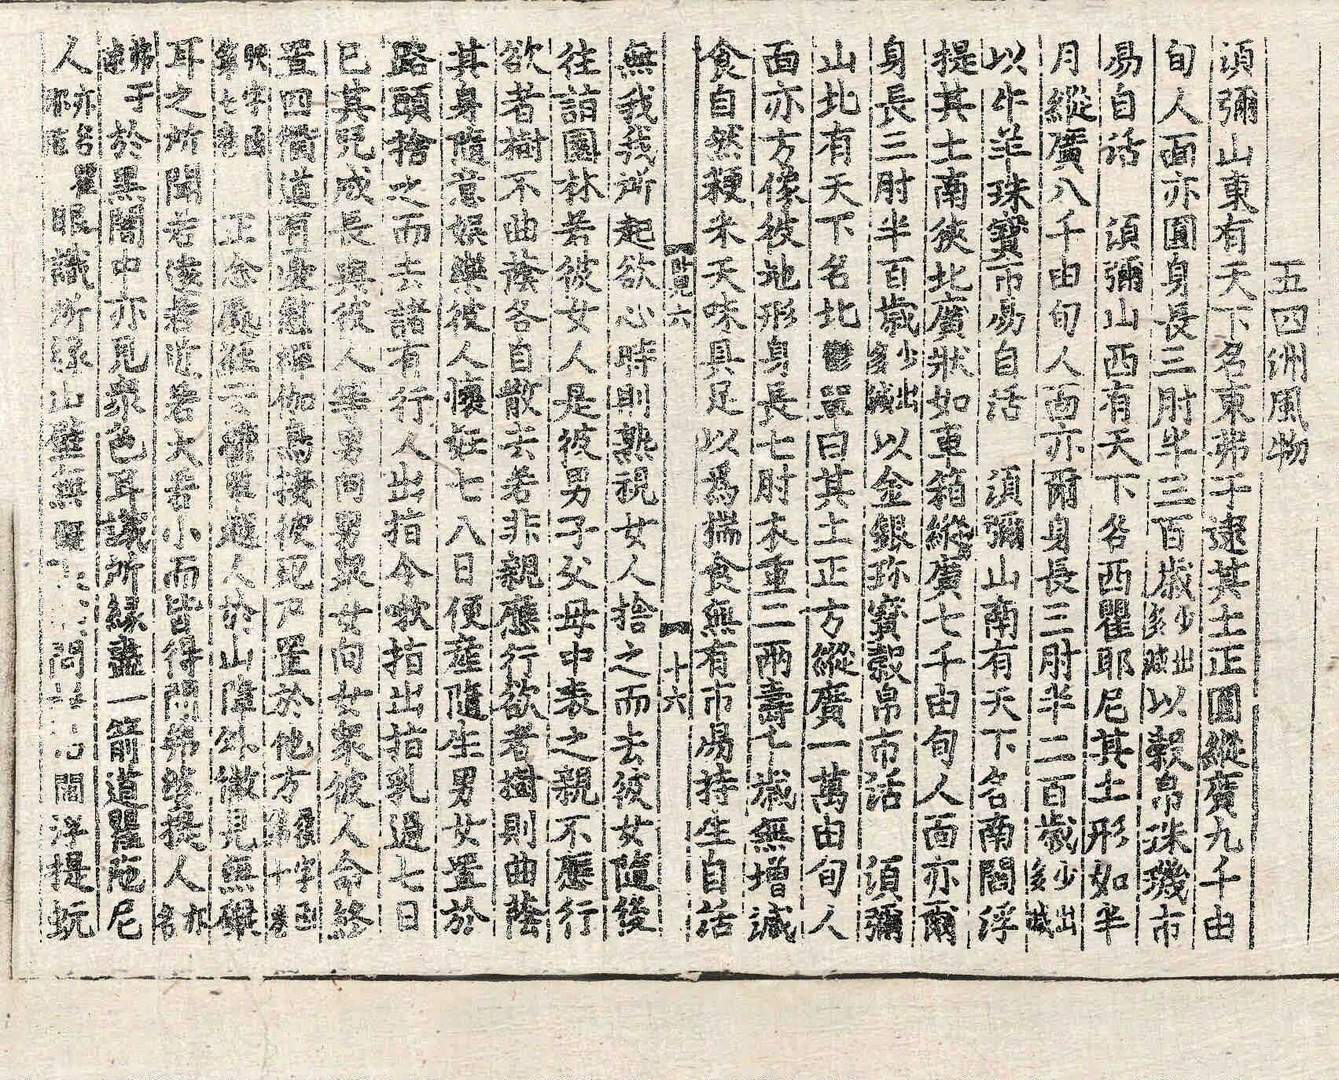 五四洲風物
須彌山東有天下名東弗于逮其土正圓縱廣九千由
旬人面亦圓身長三肘半三百歲少出多減以穀帛珠璣市
易自活　須彌山西有天下名西瞿耶尼其土形如半
月縱廣八千由旬人面亦爾身長三肘半二百歲少出多減
以牛羊珠寶市易自活　須彌山南有天下名南閻浮
提其土南狹北廣狀如車箱縱廣七千由旬人面亦爾
身長三肘半百歲少出多減以金銀珎寶穀帛市活　須彌
山北有天下名北鬱單曰其土正方縱廣一萬由旬人
面亦方像彼地形身長七肘衣重二兩壽千歲無增減
食自然粳米天味具足以為揣食無有市易持生自活
六　十六
無我我所起欲心時則熟視女人捨之而去彼女隨後
往詣園林若彼女人是彼男子父母中表之親不應行
欲者樹不曲蔭各自散去若非親應行欲者樹則曲蔭
其身隨意娛樂彼人懷妊七八日便產隨生男女置於
路頭捨之而去諸有行人出指令嗽指出指乳過七日
已其兒成長與彼人等男向男眾女向女眾彼人命終
置四衢道有憂慰禪伽鳥接彼死尸置於他方
正念處經云人於山障外徹見無礙
耳之所聞若遠若近若大若小而皆得聞弗婆提人亦名
弗于逮於黑闇中亦見眾色耳識所緣盡一箭道瞿陁尼
人亦名瞿耶尼眼識所緣山壁無礙問閻浮提